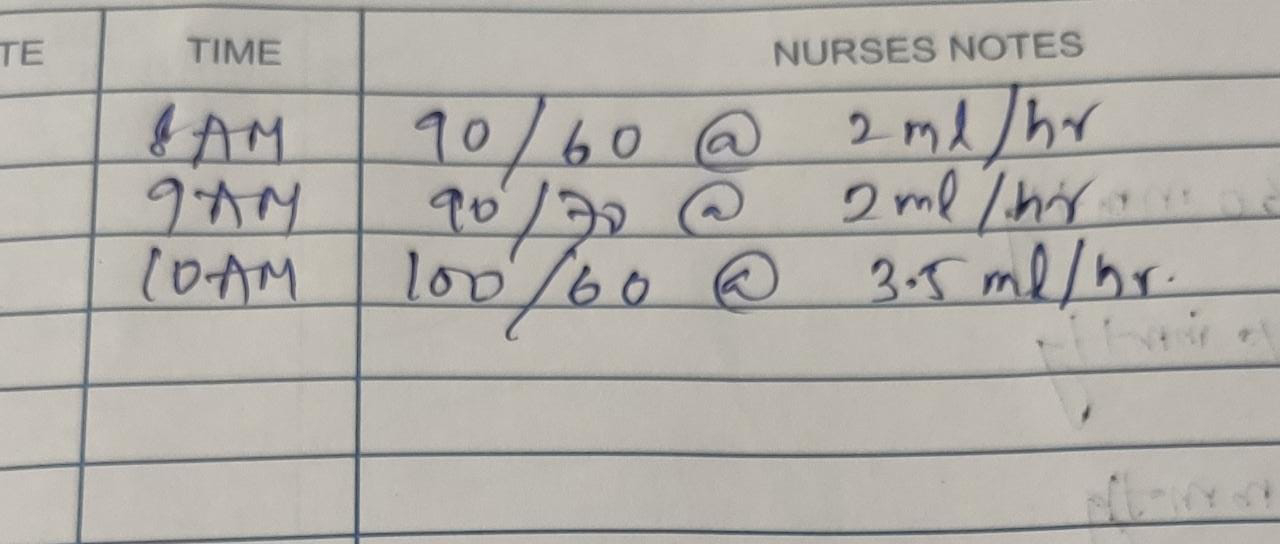 TE TIME NURSES NOTES
8 AM 90/60 @ 2 ml/hr
9 AM 90/70 @ 2 ml/hr
10 AM 100/60 @ 3.5 ml/hr.